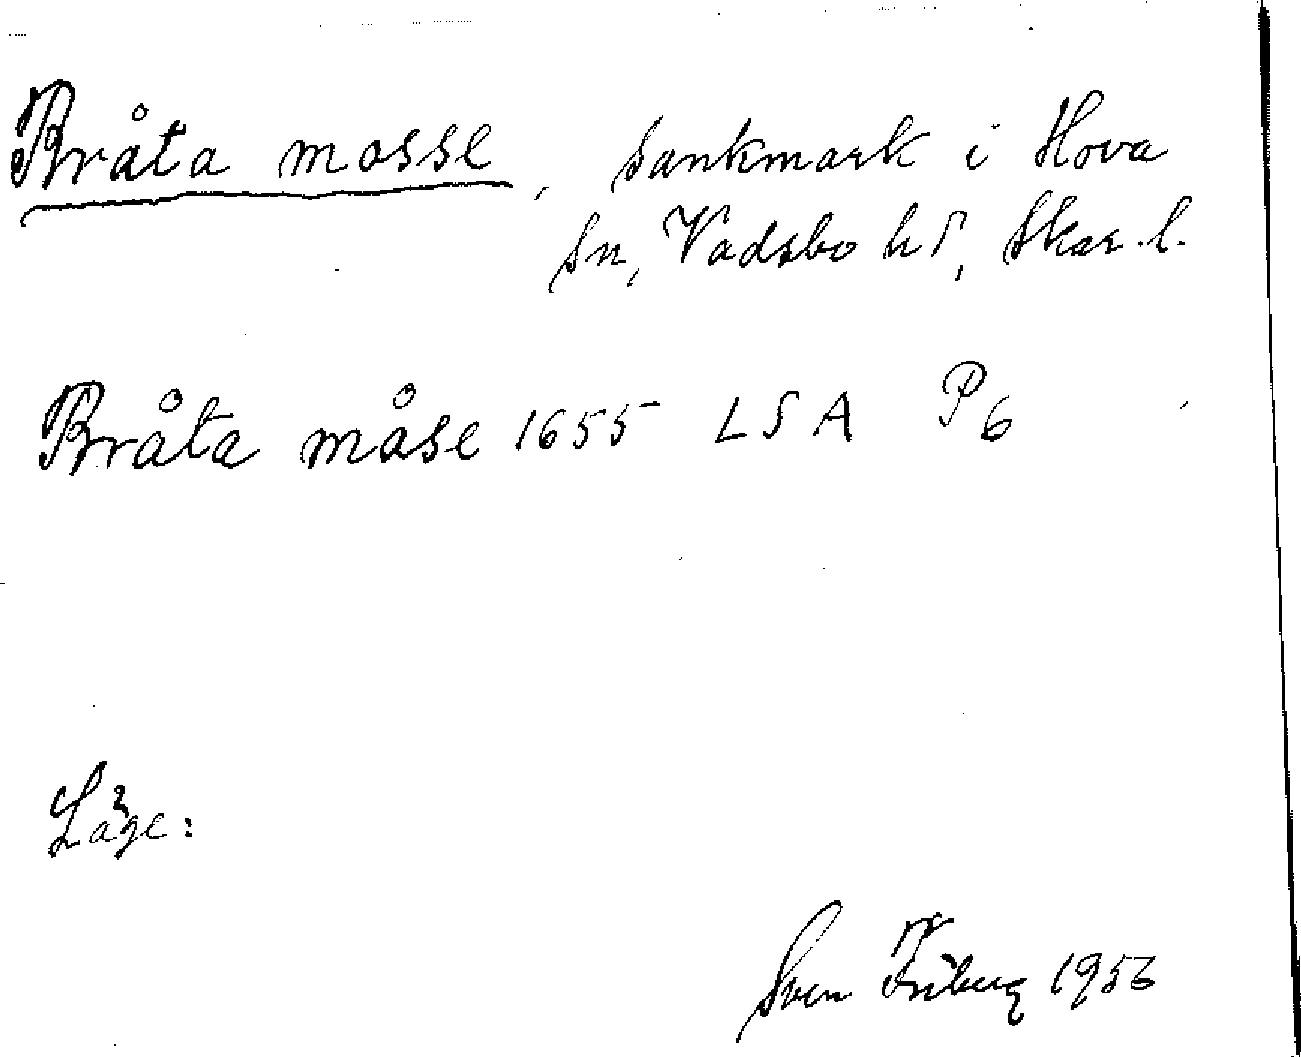 Bråta mosse, sankmark i Hova
sn, Vadsbo hd, Skar.l.
Bråta måse 1655 LSA P6
Läge:
Sven Friberg 1956